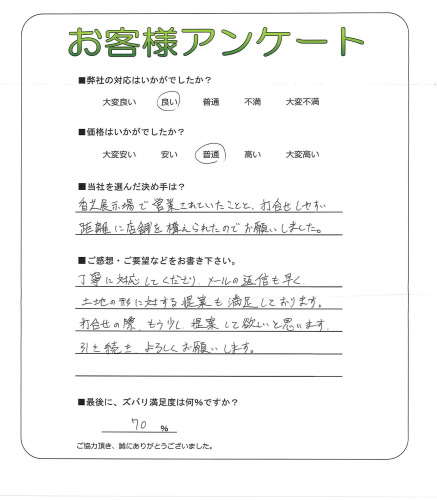 お客様アンケート
■弊社の対応はいかがでしたか？
大変良い 良い 普通 不満 大変不満
■価格はいかがでしたか？
大変安い 安い 普通 高い 大変高い
■当社を選んだ決め手は？
展示場で営業されていたことと、打合せしやすい
距離に店舗を構えられたのでお願いしました。
■ご感想・ご要望などをお書き下さい。
丁寧に対応してくださり、メールの返信も早く、
土地の形に対する提案も満足しております。
打合せの際、もう少し提案して欲しいと思います。
引き続き、よろしくお願いします。
■最後に、ズバリ満足度は何％ですか？
70 ％
ご協力頂き、誠にありがとうございました。